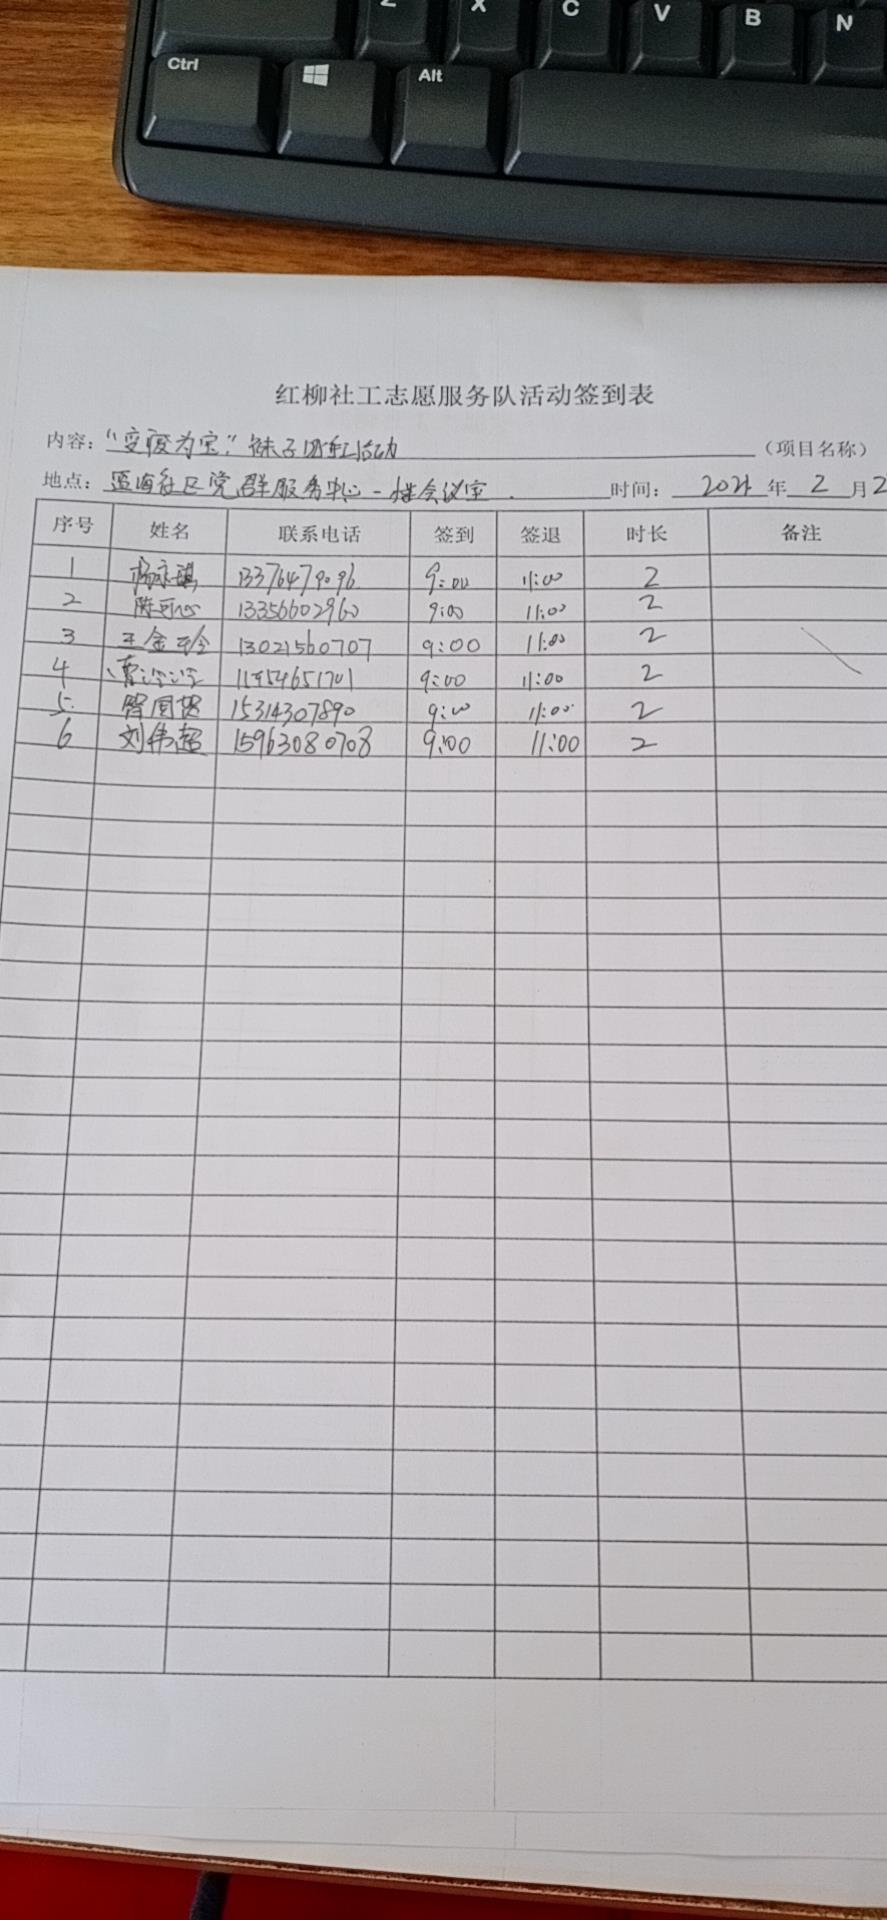 Z X C V B N
Ctrl Alt
红柳社工志愿服务队活动签到表
内容：“变废为宝” 袜子 活动 （项目名称）
地点： 海社区党群服务中心一楼会议室 时间： 年 2 月 2
序号 姓名 联系电话 签到 签退 时长 备注
1 13376479096 9:00 11:00 2
2 陈可心 13356602960 9:00 11:00 2
3 王金玲 13021560707 9:00 11:00 2
4 9:00 11:00 2
5 15314307890 9:00 11:00 2
6 刘伟超 15963080708 9:00 11:00 2